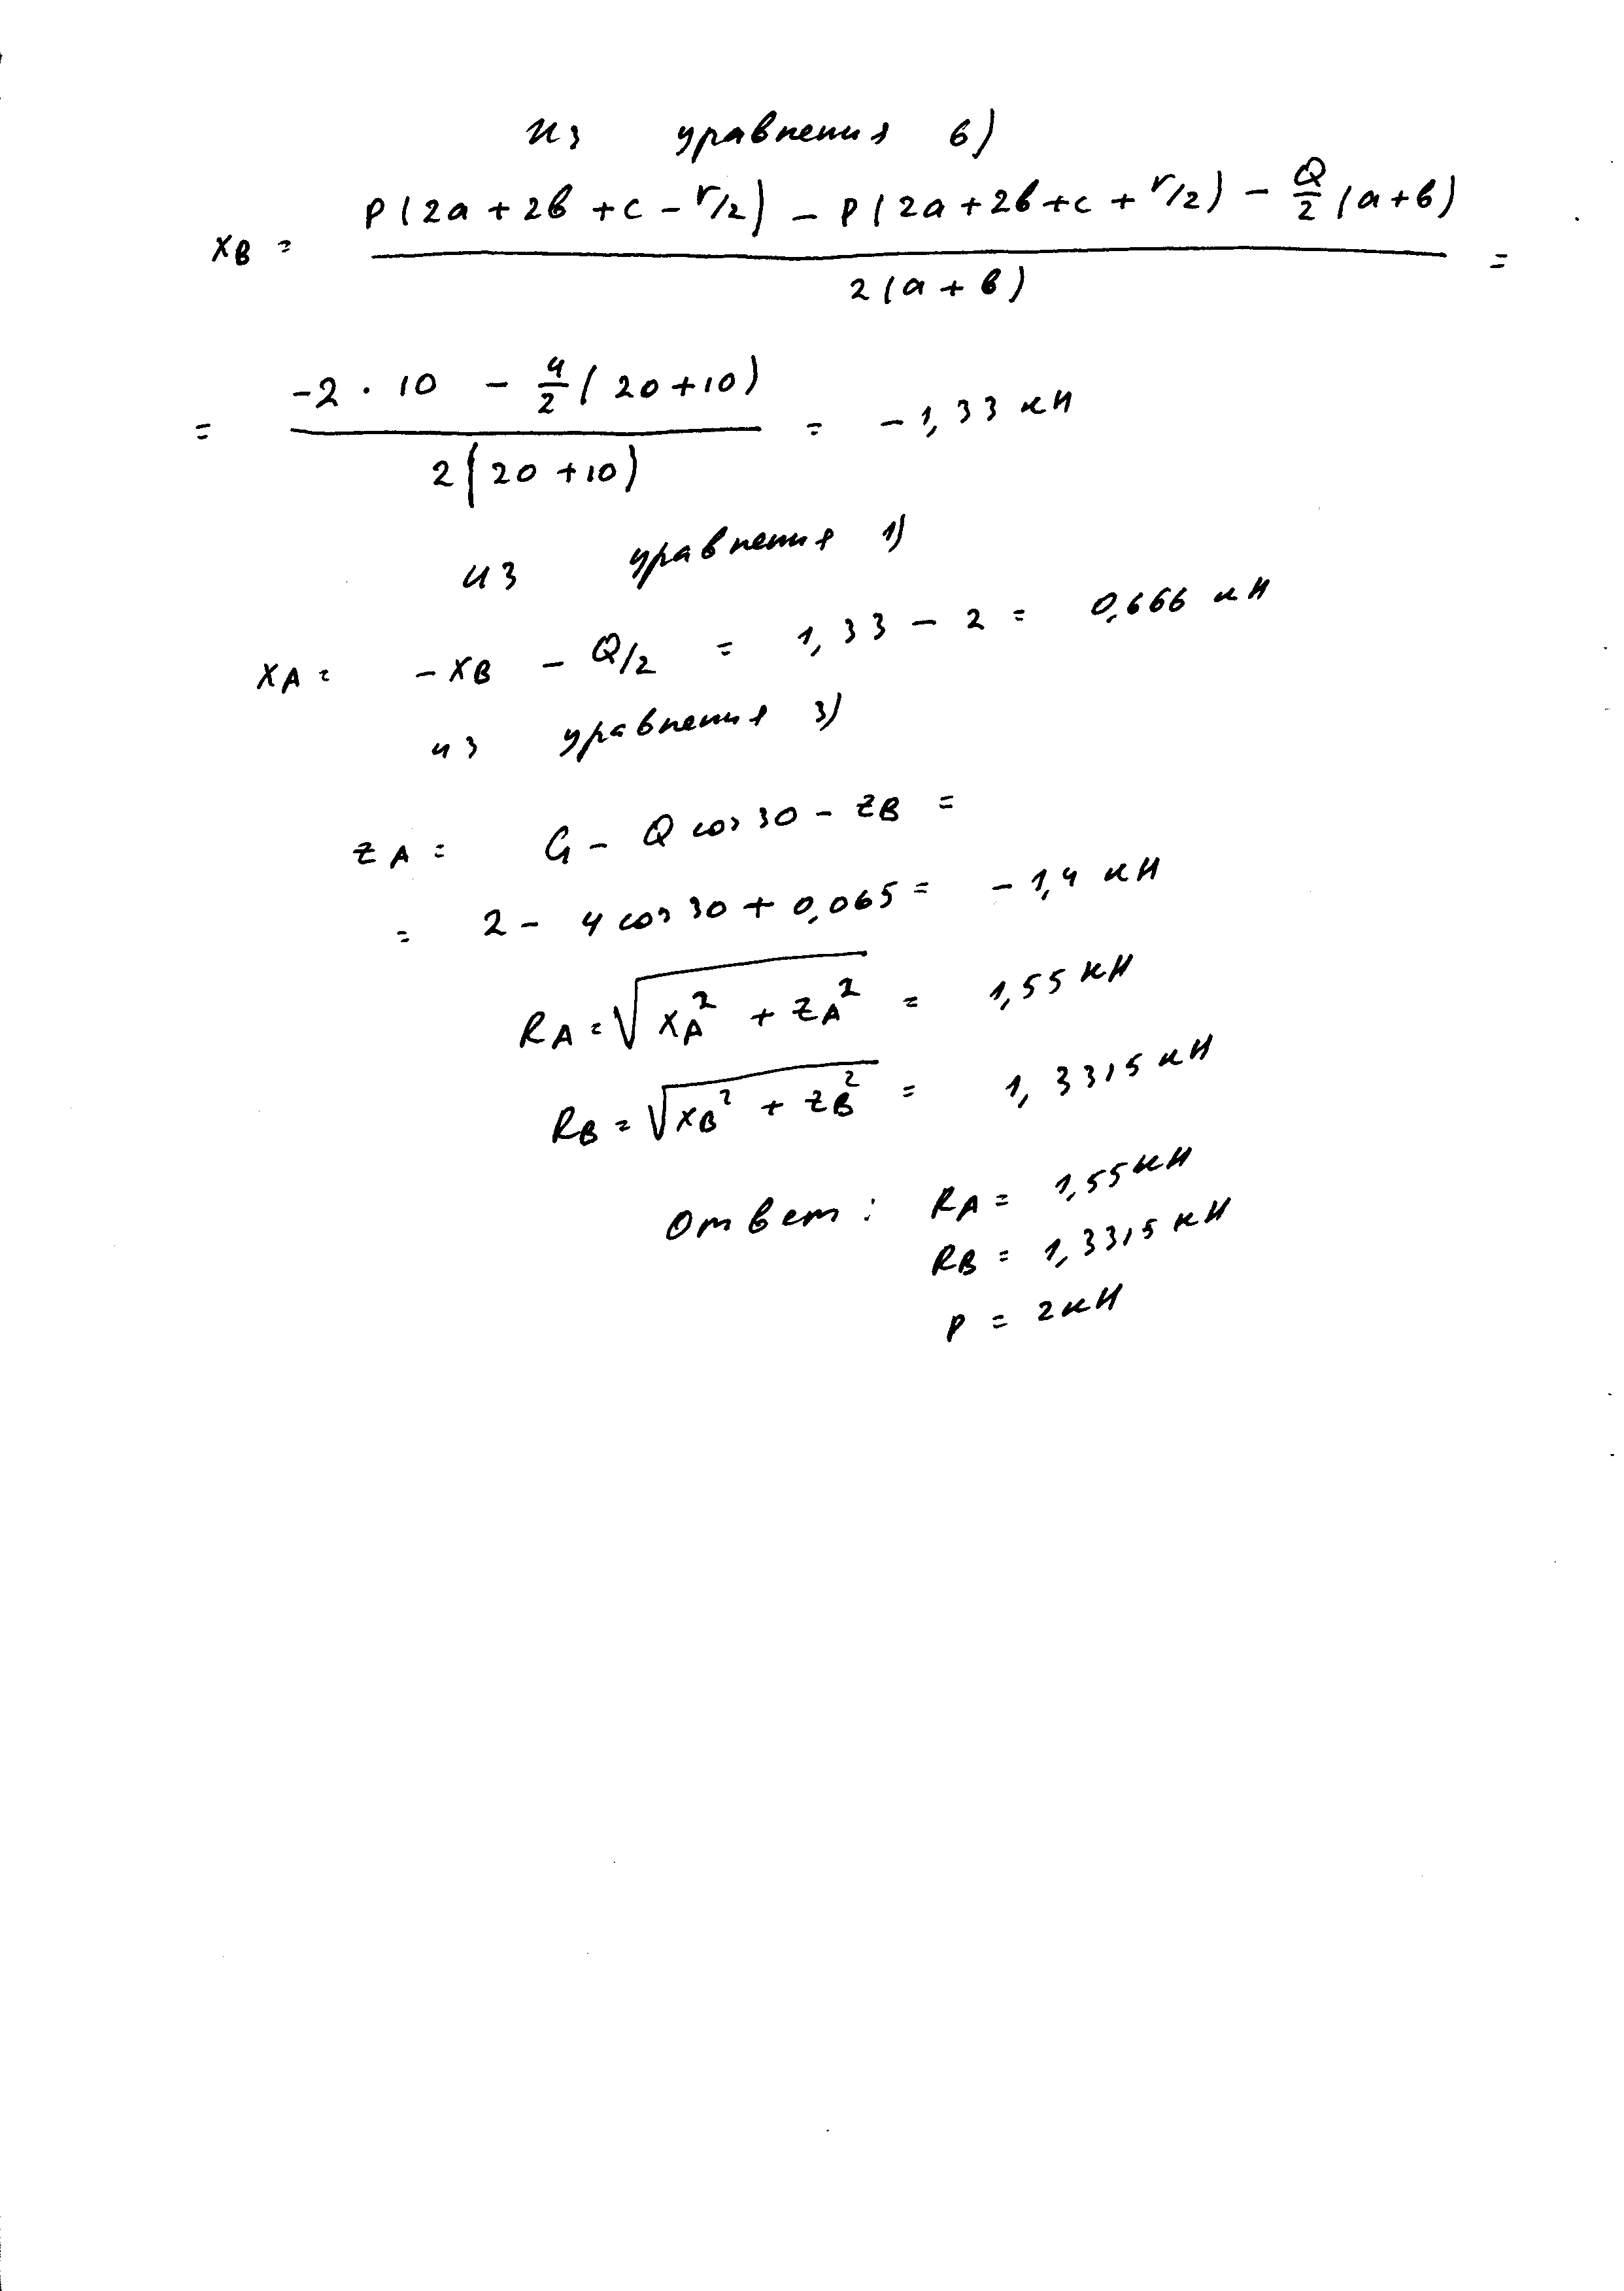 из уравнения 6)
XB = (P(2a + 2b + c - r/2) - P(2a + 2b + c + r/2) - Q/2 (a + b)) / (2(a + b)) =
= (-2 · 10 - 4/2 (20 + 10)) / (2(20 + 10)) = -1,33 кН
из уравнения 1)
XA = -XB - Q/2 = 1,33 - 2 = 0,666 кН
из уравнения 3)
ZA = G - Q cos 30 - ZB =
= 2 - 4 cos 30 + 0,065 = -1,4 кН
RA = √(XA² + ZA²) = 1,55 кН
RB = √(XB² + ZB²) = 1,3315 кН
Ответ: RA = 1,55 кН
RB = 1,3315 кН
P = 2 кН